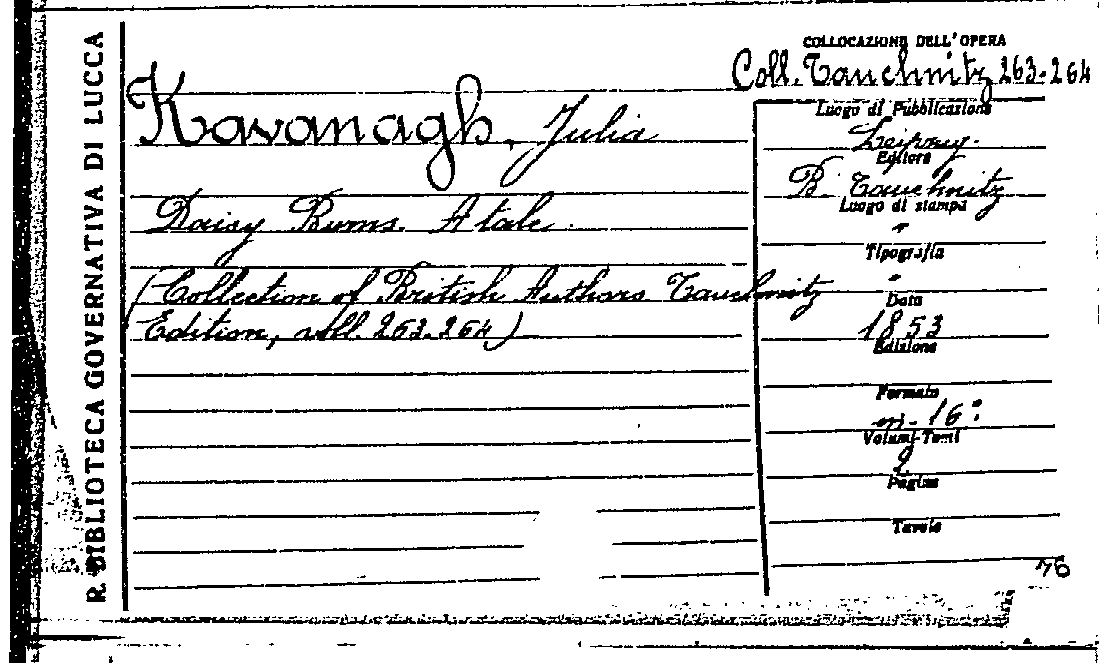 R. BIBLIOTECA GOVERNATIVA DI LUCCA
Kavanagh, Julia
Daisy Burns. A tale.
(Collection of British Authors Tauchnitz
Edition, voll. 263-264)
COLLOCAZIONE DELL'OPERA
Coll. Tauchnitz 263-264
Luogo di Pubblicazione
Leipzig.
Editore
B. Tauchnitz
Luogo di stampa
"
Tipografia
"
Data
1853
Edizione
Formato
in-16°
Volumi-Tomi
2
Pagine
Tavole
76